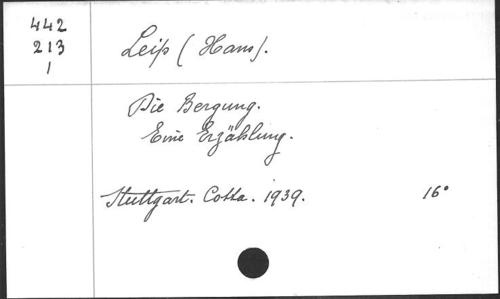 442
213
1
Leip (Hans).
Die Bergung.
Eine Erzählung.
Stuttgart. Cotta. 1939. 16°